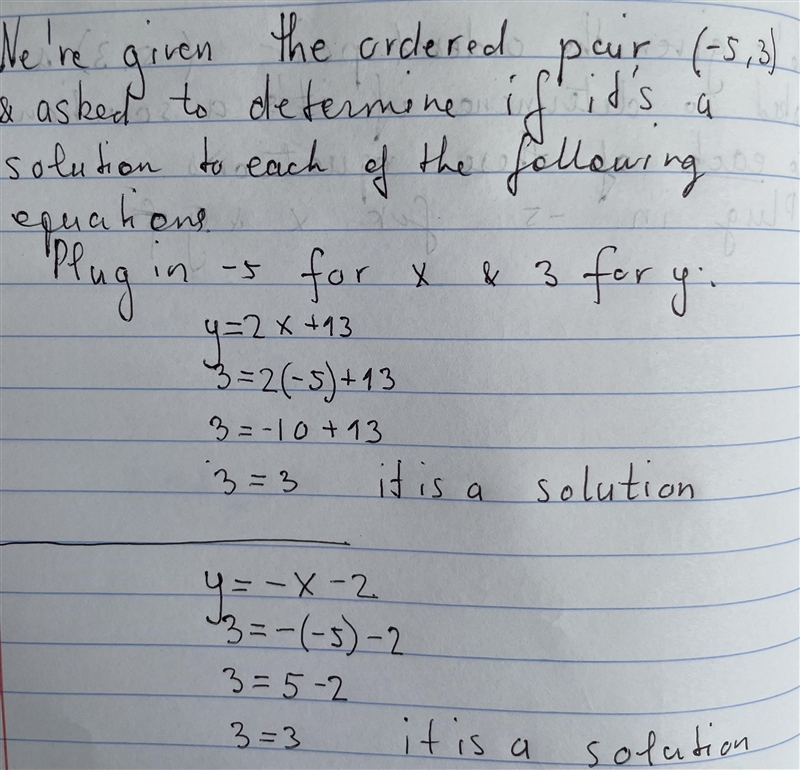 We're given the ordered pair (-5,3)
& asked to determine if it's a
solution to each of the following
equations.
Plug in -5 for x & 3 for y:
y=2x+13
3=2(-5)+13
3=-10+13
3=3 it is a solution
y=-x-2
3=-(-5)-2
3=5-2
3=3 it is a solution